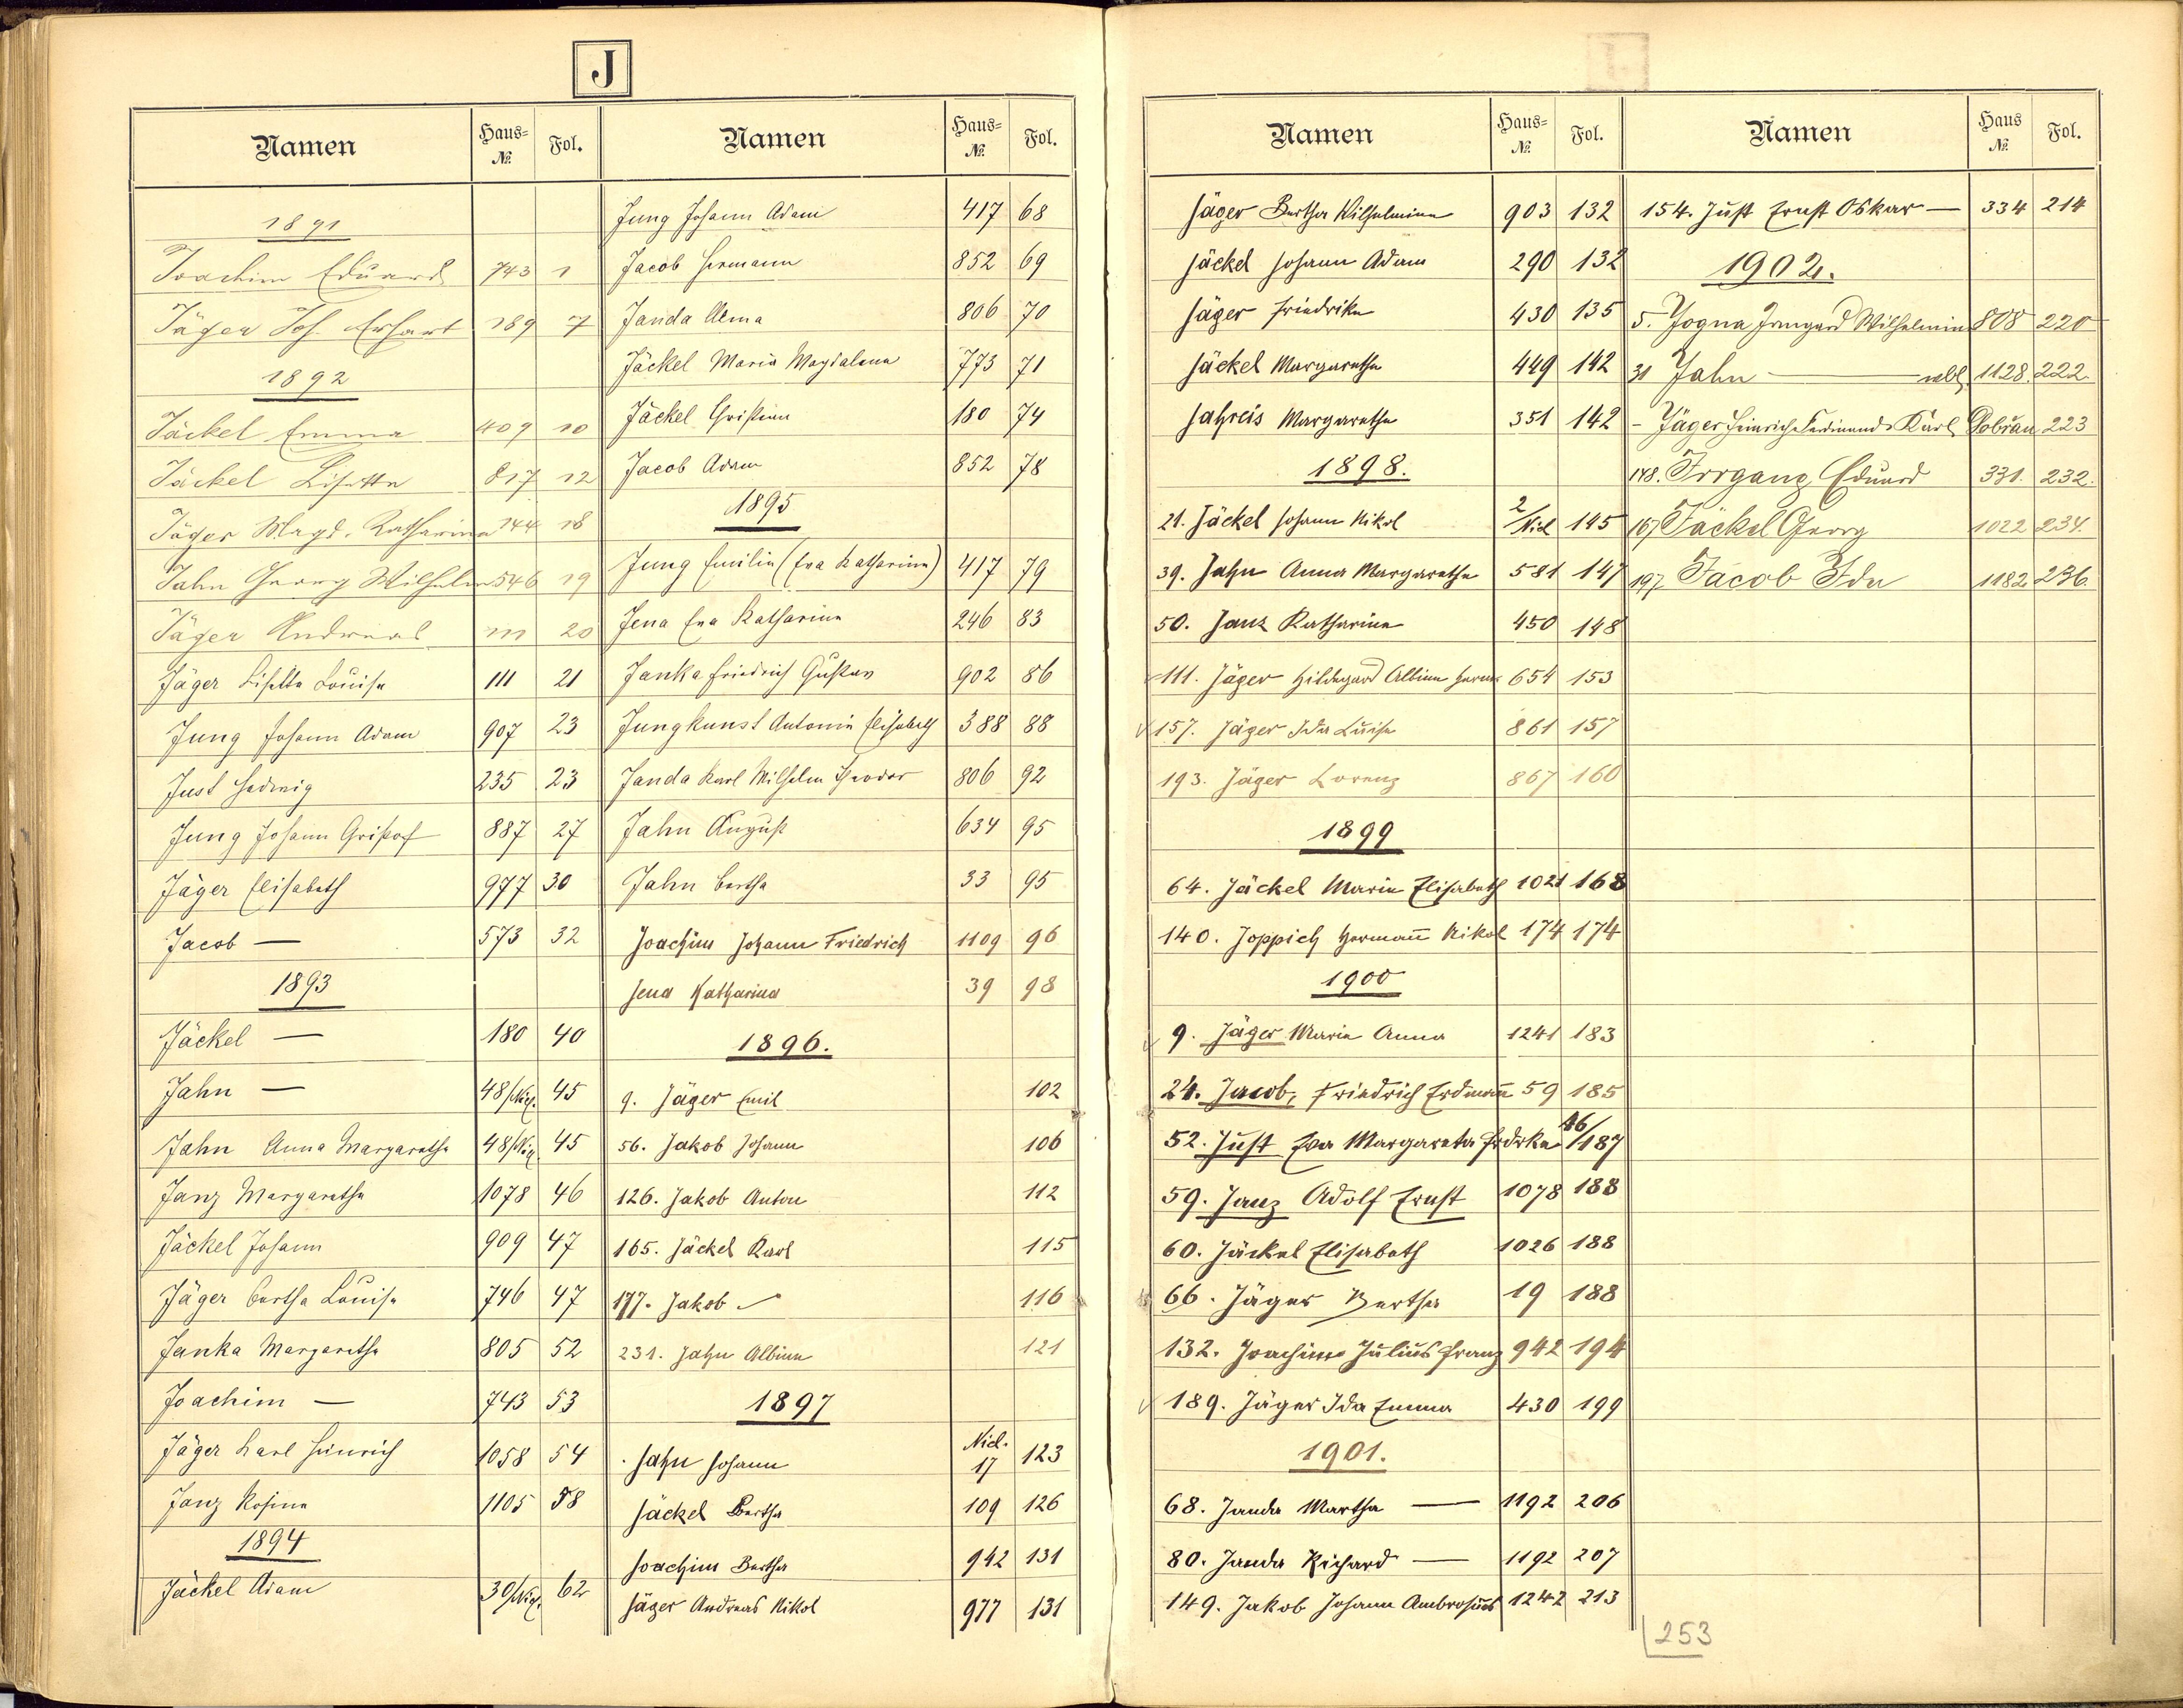 J
Namen Haus-№ Fol.
1891
Joachim Eduard 743 1
Jäger Joh. Erhart 189 7
1892
Jäckel Emma 409 10
Jäckel Lisette 817 12
Jäger Magd. Katharina 144 18
Jahn Georg Wilhelm 546 19
Jäger Andreas 111 20
Jäger Lisetta Louise 111 21
Jung Johann Adam 907 23
Just Hedwig 235 23
Jung Johann Christof 887 27
Jäger Elisabeth 977 30
Jacob — 573 32
1893
Jäckel — 180 40
Jahn — 48/Nied. 45
Jahn Anna Margaretha 48/Nied. 45
Janz Margaretha 1078 46
Jäckel Johann 909 47
Jäger Bertha Louise 746 47
Janka Margaretha 805 52
Joachim — 743 53
Jäger Karl Heinrich 1058 54
Janz Rosina 1105 58
1894
Jäckel Adam 30/Nied. 62
Namen Haus-№ Fol.
Jung Johann Adam 417 68
Jacob Hermann 852 69
Janda Alma 806 70
Jäckel Maria Magdalena 773 71
Jäckel Christian 180 74
Jacob Adam 852 78
1895
Jung Emilie (Eva Katharina) 417 79
Jena Eva Katharina 246 83
Janka Friedrich Gustav 902 86
Jungkunst Antonie Elisabeth 388 88
Janda Karl Wilhelm Theodor 806 92
Jahn August 634 95
Jahn Bertha 33 95
Joachim Johann Friedrich 1109 96
Jena Katharina 39 98
1896.
9. Jäger Emil 102
56. Jakob Johann 106
126. Jakob Anton 112
165. Jäckel Karl 115
177. Jakob — 116
231. Jahn Albine 121
1897
Jahn Johann Nied. 17 123
Jäckel Bertha 109 126
Joachim Bertha 942 131
Jäger Andreas Nikol 977 131
Namen Haus-№ Fol.
Jäger Bertha Wilhelmine 903 132
Jäckel Johann Adam 290 132
Jäger Friedrike 430 135
Jäckel Margaretha 449 142
Jahreis Margaretha 351 142
1898.
21. Jäckel Johann Nikol 2/Nied 145
39. Jahn Anna Margaretha 581 147
50. Janz Katharine 450 148
111. Jäger Hildegard Albine 654 153
157. Jäger Ida Luise 861 157
193. Jäger Lorenz 867 160
1899
64. Jäckel Marie Elisabeth 1021 168
140. Joppich Hermann Nikol 174 174
1900
9. Jäger Marie Anna 1241 183
24. Jacob, Friedrich Erdmann 59 185
52. Just Eva Margareta Frdrka 46/187
59. Janz Adolf Ernst 1078 188
60. Jäckel Elisabeth 1026 188
66. Jäger Bertha 19 188
132. Joachim Julius Franz 942 194
189. Jäger Ida Emma 430 199
1901.
68. Janda Martha — 1192 206
80. Janda Richard — 1192 207
149. Jakob Johann Ambrosius 1242 213
Namen Haus № Fol.
154. Just Ernst Oskar — 334 214
1902.
5. Irmgard Wilhelmine 808 220
31 Jahn — 1128. 222
- Jäger Heinrich Ferdinand Karl Dobrau 223
148. Irrgang Eduard 331. 232.
167 Jäckel Georg 1022 234.
197 Jacob Ida 1182 236
253